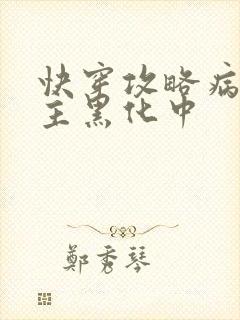 快穿攻略病
主黑化中
鄭秀琴